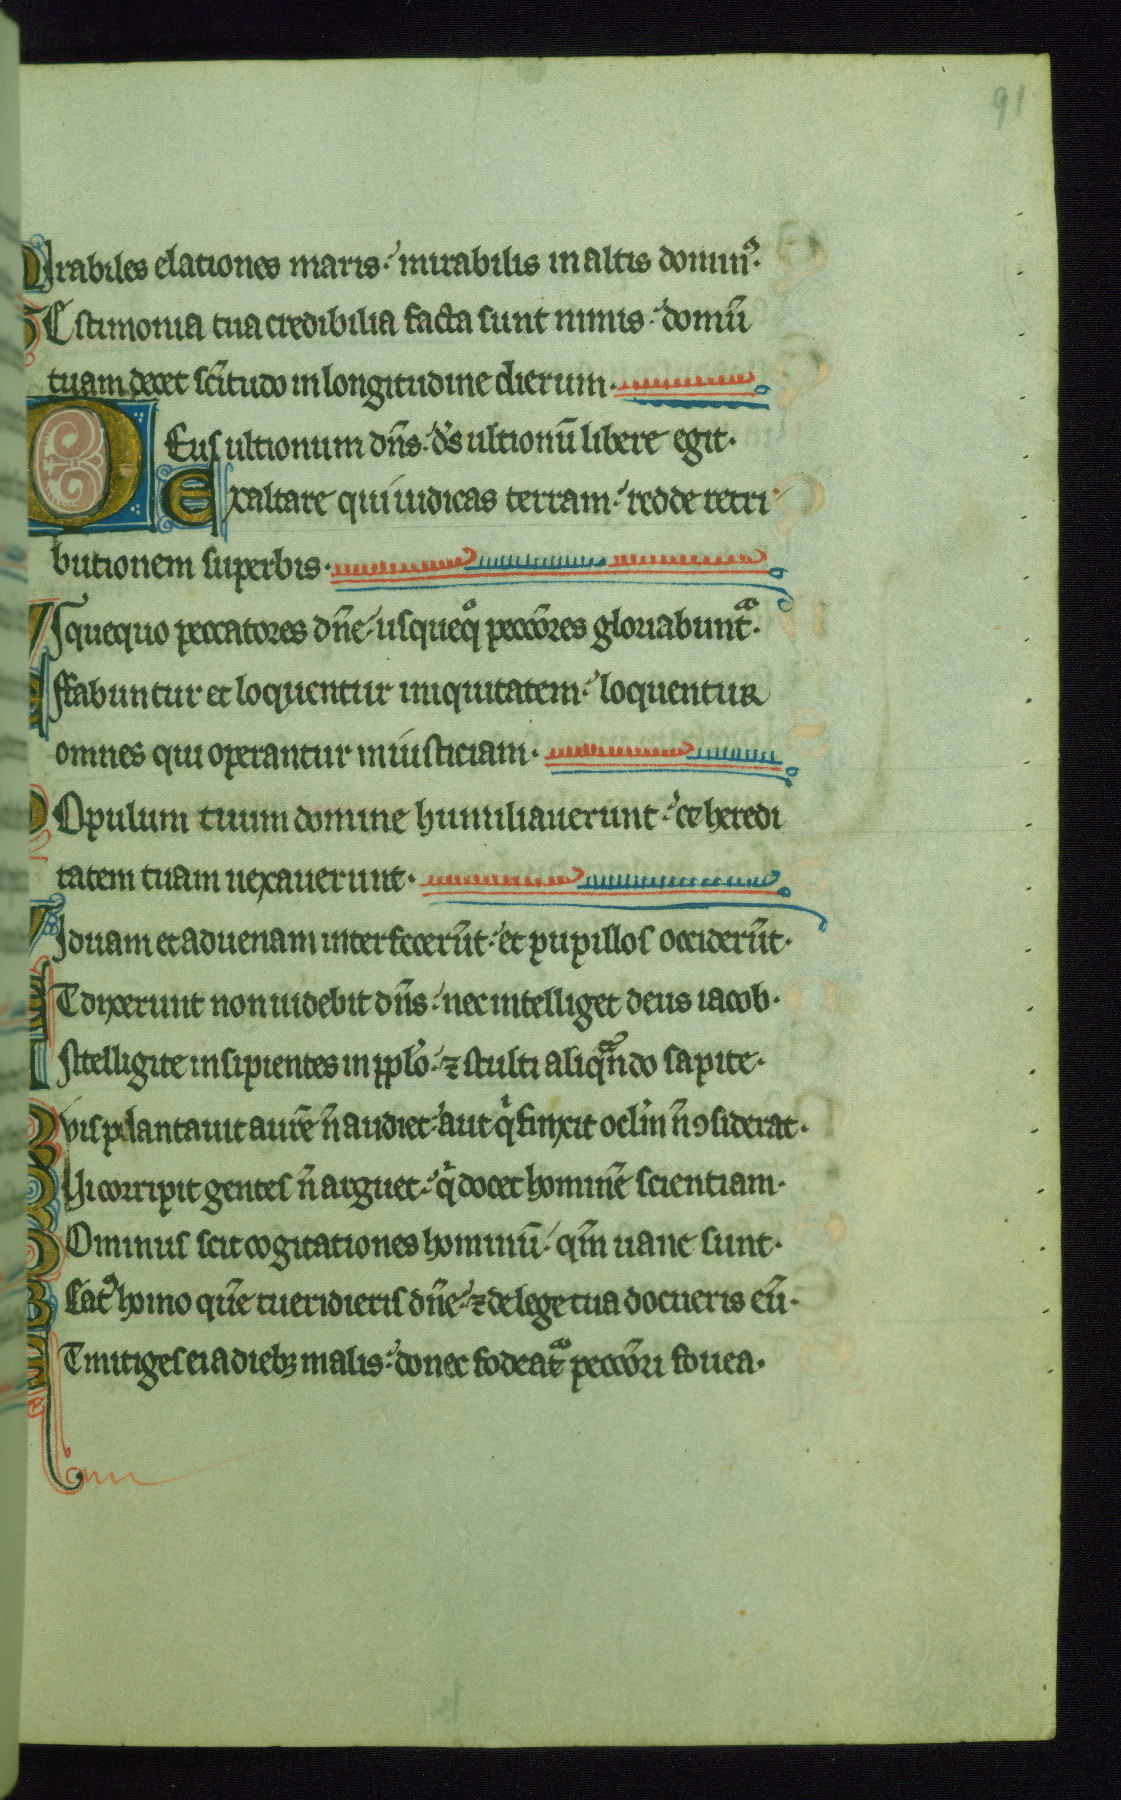 91
Mirabiles elationes maris: mirabilis in altis domin⁹.
TEstimonia tua credibilia facta sunt nimis: domū
tuam decet sc̄itudo in longitudine dierum.
DEus ultionum dn̄s: ds̄ ultionū libere egit.
Exaltare qui iudicas terram: redde retri
butionem superbis.
Vsquequo peccatores dn̄e: usqueqͦ peccōres gloriabunt᷑.
Effabuntur et loquentur iniquitatem: loquentur
omnes qui operantur iniusticiam.
POpulum tuum domine humiliauerunt: et heredi
tatem tuam uexauerunt.
Viduam et aduenam interfecerūt: et pupillos occiderūt.
ET dixerunt non uidebit dn̄s: nec intelliget deus iacob.
Intelligite insipientes in pplo̅: ⁊ stulti aliqᷓndo sapite.
Qui plantauit aurē n̄ audiet: aut qͥ finxit oclm̄ n̄ ꝯsiderat.
Qui corripit gentes n̄ arguet: qͥ docet hominē scientiam.
DOminus scit cogitationes hominū: qm̄ uane sunt.
Beat⁹ homo quē tu eridieris dn̄e: ⁊ de lege tua docueris eū.
ET mitiges ei a diebꝫ malis: donec fodeat᷑ peccōri fouea.